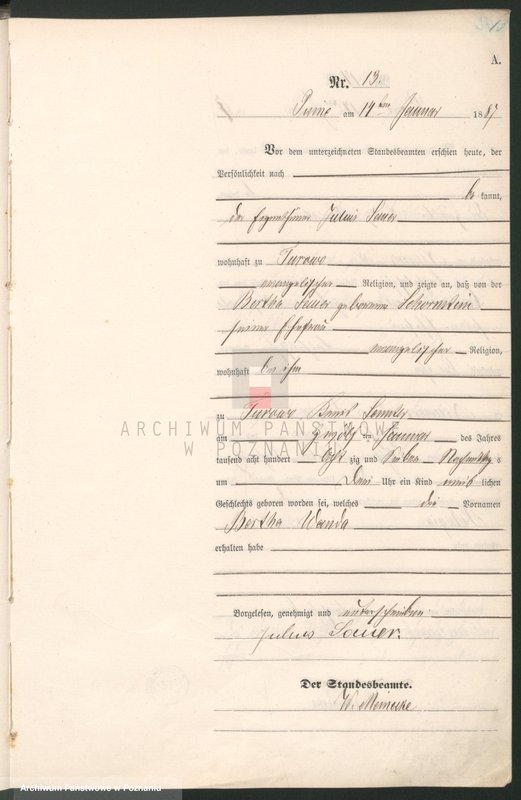 A.
Nr. 13.
am 14ten Januar 1887
Vor dem unterzeichneten Standesbeamten erschien heute, der
Persönlichkeit nach
be kannt,
der Eigenthümer Julius Sauer
wohnhaft zu Turowo
evangelischer Religion, und zeigte an, daß von der
Bertha Sauer geborenen Schornstein
seiner Ehefrau
evangelischer Religion,
wohnhaft bei ihm
zu Turowo Kreis
ARCHIWUM PAŃSTWOWE
W POZNANIU
am zwölften Januar des Jahres
tausend acht hundert acht zig und sieben Nachmittags
um drei Uhr ein Kind weib lichen
Geschlechts geboren worden sei, welches die Vornamen
Bertha Wanda
erhalten habe
Vorgelesen, genehmigt und unterschrieben:
Julius Sauer.
Der Standesbeamte.
Archiwum Państwowe w Poznaniu